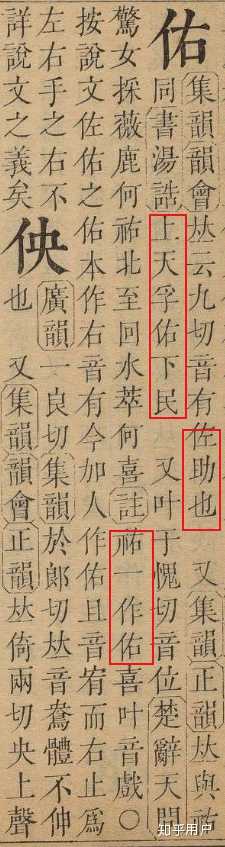 佑
集韻韻會𠀤云九切音有佐助也 又集韻正韻𠀤與祐
同書湯誥上天孚佑下民 又叶于愧切音位楚辭天問
驚女採薇鹿何祐北至回水萃何喜註祐一作佑喜叶音戲○
按說文佐佑之佑本作右音有今加人作佑且音宥而右止爲
左右手之右不
詳說文之義矣
佒
廣韻一良切集韻於郎切𠀤音鴦體不伸
也 又集韻韻會正韻𠀤倚兩切央上聲
知乎用户